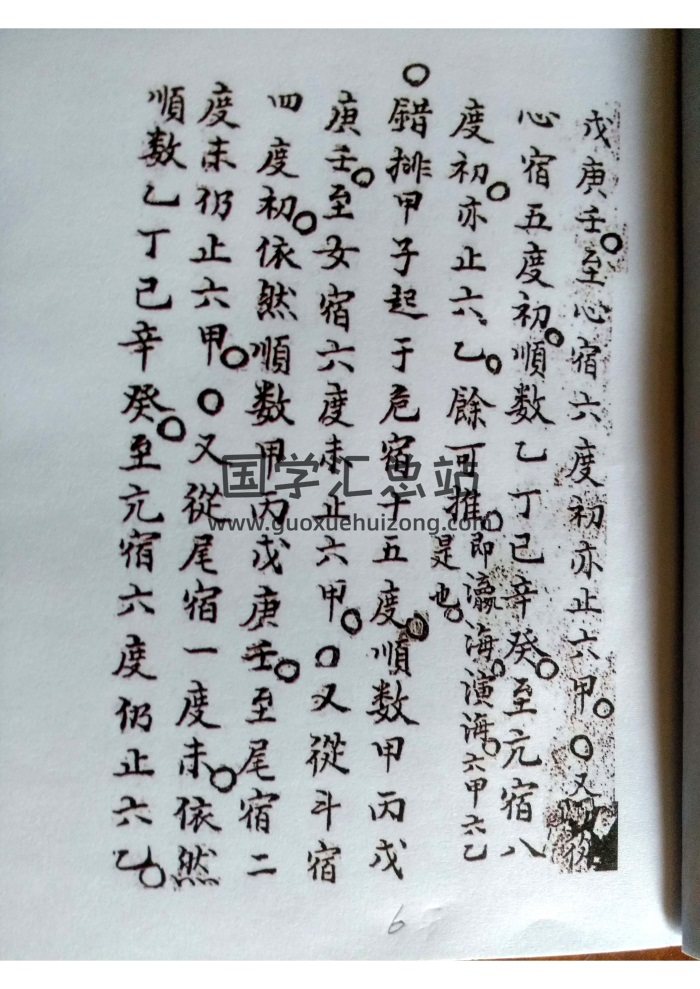 戊庚壬○至心宿六度初亦止六甲○○又從
心宿五度初○順数乙丁己辛癸○至亢宿八
度初○亦止六乙○餘可推○即瀛海○演海○六甲六乙
是也○
○錯排甲子起于危宿十五度○順数甲丙戊
庚壬○至女宿六度末止六甲○○又從斗宿
四度初○依然順数甲丙戊庚壬○至尾宿二
度末仍止六甲○○又從尾宿一度末○依然
順数乙丁己辛癸○至亢宿六度仍止六乙○
国学汇总站
www.guoxuehuizong.com
6